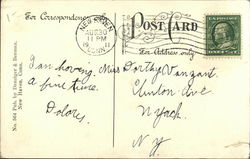 For Correspondence
NEW HAVEN
AUG 30
11 PM
1911
POST CARD
For Address only
No. 564 Pub. by Danziger & Berman,
New Haven, Conn.
I am having
a fine time.
Dolores
Miss Dorthy Vanzant
Clinton Ave
Nyack
N.Y.